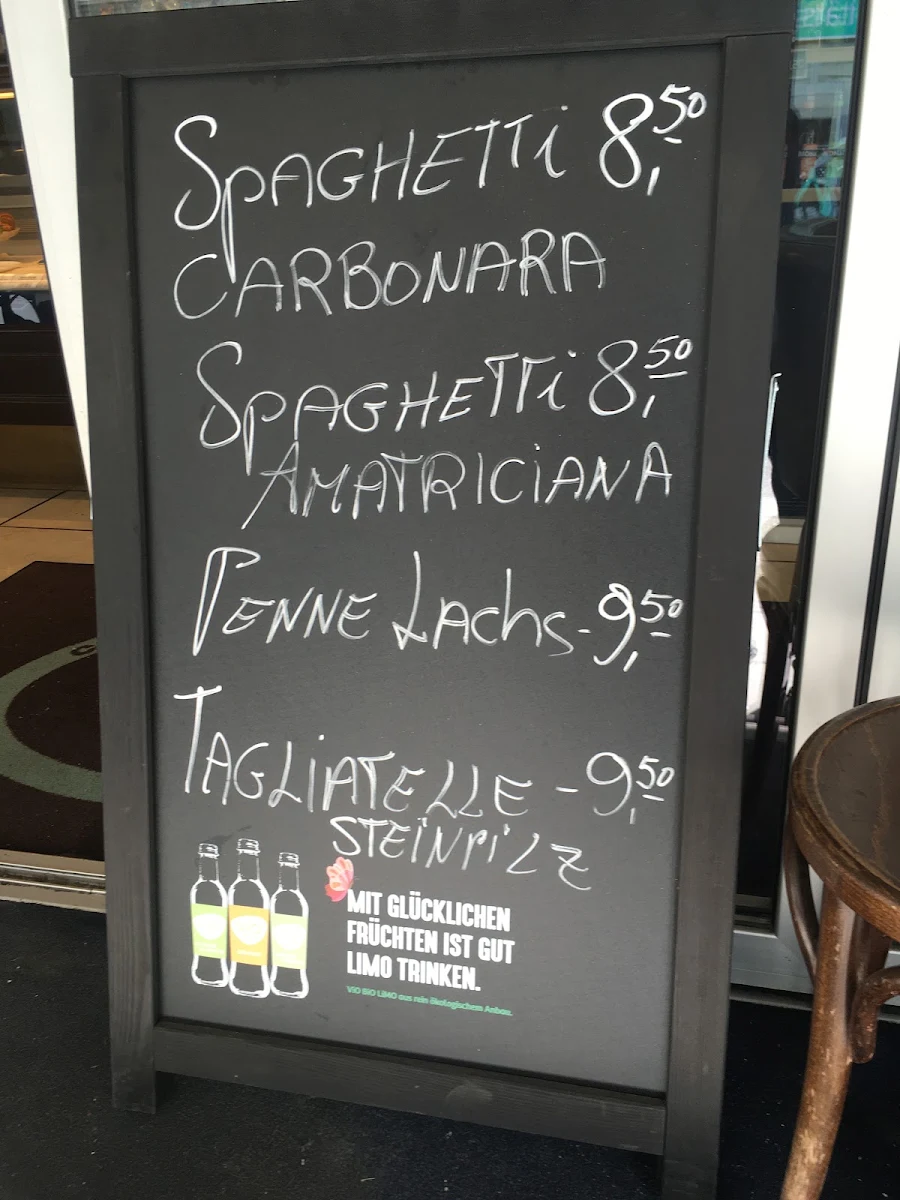 SPAGHETTi 8,50
CARBONARA
SPAGHETTi 8,50
AMATRICiANA
PENNE Lachs-9,50
TAGLiATELLE -9,50
STEiNPiLZ
MIT GLÜCKLICHEN
FRÜCHTEN IST GUT
LIMO TRINKEN.
ViO BiO LiMO aus rein ökologischem Anbau.